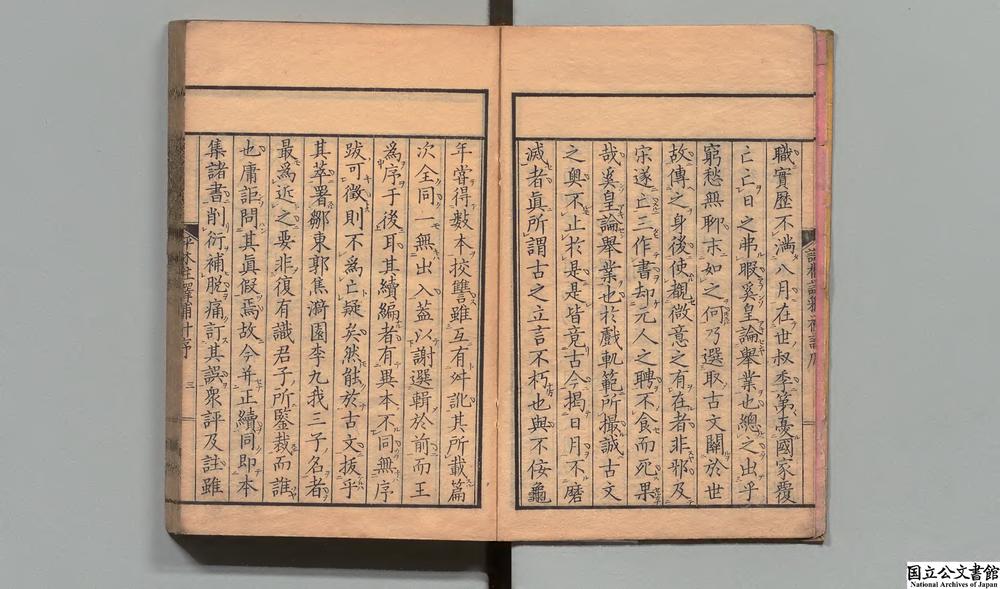 職實歷不滿八月在世叔季第憂國家覆
亡亡日之弗暇奚皇論舉業也總之出乎
窮愁無聊末如之何乃選取古文關於世
故傳之身後使覩微意之有在者非邪及
宋遂亡三作書却元人之聘不食而死果
哉奚皇論舉業也於戲軌範所撮誠古文
之奥不止於是是皆竟古今揭日月不磨
滅者眞所謂古之立言不朽也與不佞龜
年嘗得數本挍讐雖互有舛訛其所載篇
次全同一無出入葢以謝選輯於前而王
為序于後耳其續編者有異本不同無序
跋可徵則不為亡疑矣然能於古文拔乎
其萃署鄒東郭焦漪園李九我三子名者
最爲近之要非復有識君子所鑒裁而誰
也庸詎問其眞假焉故今并正續同即本
集諸書削衍補脱痛訂其誤衆評及註雖
三
国立公文書館
National Archives of Japan